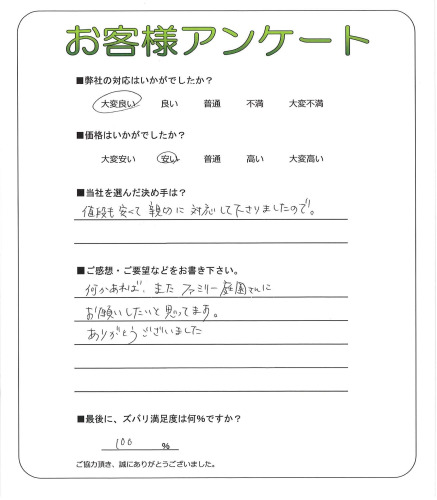 お客様アンケート
■弊社の対応はいかがでしたか？
大変良い 良い 普通 不満 大変不満
■価格はいかがでしたか？
大変安い 安い 普通 高い 大変高い
■当社を選んだ決め手は？
値段も安くて親切に対応して下さりましたので。
■ご感想・ご要望などをお書き下さい。
何かあれば、またファミリー庭園さんに
お願いしたいと思ってます。
ありがとうございました
■最後に、ズバリ満足度は何％ですか？
100 %
ご協力頂き、誠にありがとうございました。